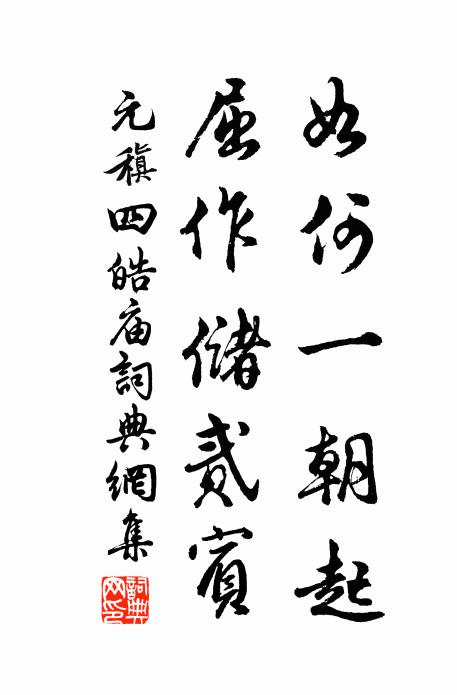 如何一朝起
屈作儲貳賓
元稹四皓庙詞典網集
詞典网印